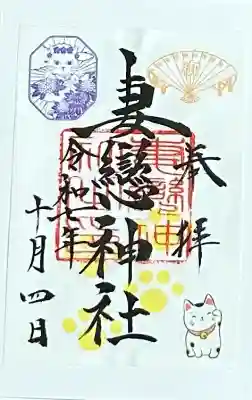 奉拝
妻戀神社
令和七年
十月四日